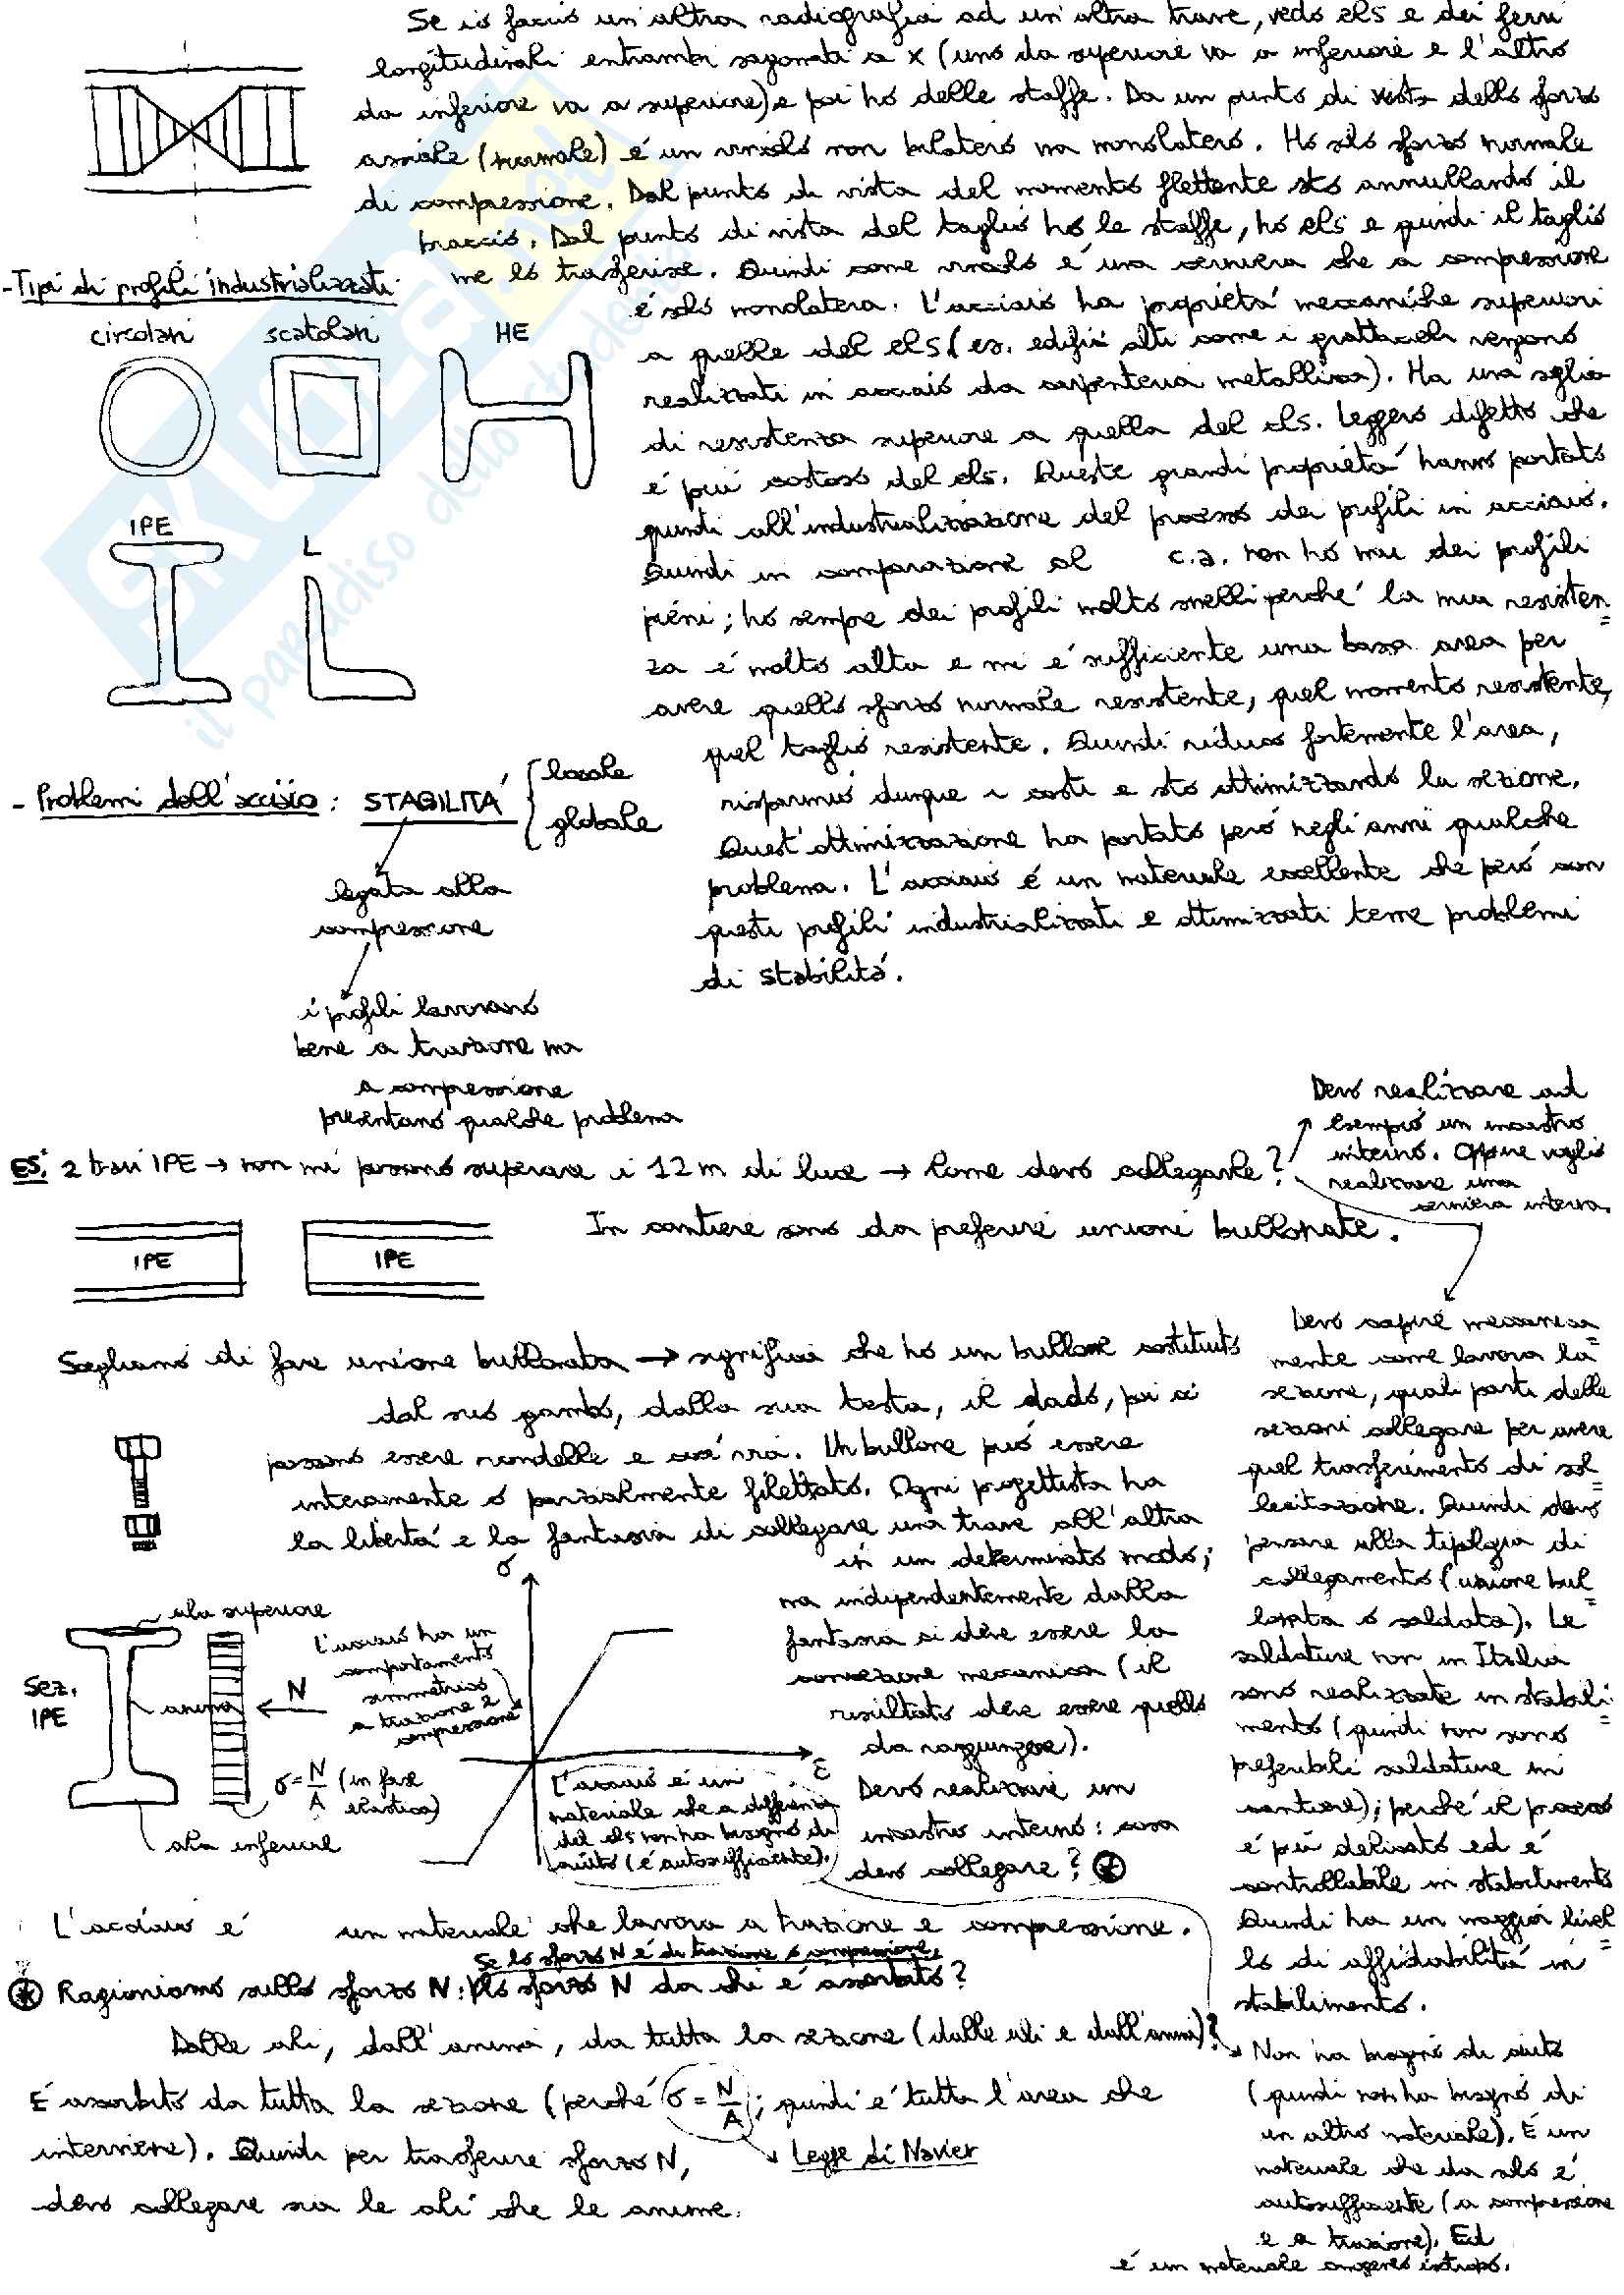 Se io faccio un'altra radiografia ad un'altra trave, vedo cls e dei ferri
longitudinali entrambi sagomati a X (uno da superiore va a inferiore e l'altro
da inferiore va a superiore) e poi ho delle staffe. Da un punto di vista dello sforzo
assiale (normale) é un vincolo non bilatero ma monolatero. Ho solo sforzo normale
di compressione. Dal punto di vista del momento flettente sto annullando il
braccio. Dal punto di vista del taglio ho le staffe, ho cls e quindi il taglio
me lo trasferisce. Quindi come vincolo é una cerniera che a compressione
é solo monolatera. L'acciaio ha proprietá meccaniche superiori
a quelle del cls (es. edifici alti come i grattacieli vengono
realizzati in acciaio da carpenteria metallica). Ha una soglia
di resistenza superiore a quella del cls. Leggero difetto che
é piú costoso del cls. Queste grandi proprietá hanno portato
quindi all'industrializzazione del processo dei profili in acciaio.
Quindi in comparazione al c.a. non ho mai dei profili
pieni; ho sempre dei profili molto snelli perché la mia resisten=
za é molto alta e mi é sufficiente una bassa area per
avere quello sforzo normale resistente, quel momento resistente,
quel taglio resistente. Quindi riduco fortemente l'area,
risparmio dunque i costi e sto ottimizzando la sezione.
Quest'ottimizzazione ha portato peró negli anni qualche
problema. L'acciaio é un materiale eccellente che peró con
questi profili industrializzati e ottimizzati teme problemi
di stabilitá.
- Tipi di profili industrializzati:
circolari scatolari HE
IPE L
- Problemi dell'acciaio: STABILITÁ { locale
globale
legata alla
compressione
i profili lavorano
bene a trazione ma
a compressione
presentano qualche problema
ES: 2 travi IPE → non mi possono superare i 12 m di luce → Come devo collegarle?
Devo realizzare ad
esempio un incastro
interno. Oppure voglio
realizzare una
cerniera interna.
In cantiere sono da preferire unioni bullonate.
IPE IPE
Scegliamo di fare unione bullonata → significa che ho un bullone costituito
dal suo gambo, dalla sua testa, il dado, poi ci
possono essere rondelle e cosí via. Un bullone puó essere
interamente o parzialmente filettato. Ogni progettista ha
la libertá e la fantasia di collegare una trave all'altra
in un determinato modo;
ma indipendentemente dalla
fantasia ci deve essere la
connessione meccanica (il
risultato deve essere quello
da raggiungere).
Devo realizzare un
incastro interno: cosa
devo collegare? ⊛
Devo capire meccanica=
mente come lavora la
sezione, quali parti delle
sezioni collegare per avere
quel trasferimento di sol=
lecitazione. Quindi devo
pensare alla tipologia di
collegamento (unione bul=
lonata o saldata). Le
saldature non in Italia
sono realizzate in stabili=
mento (quindi non sono
preferibili saldature in
cantiere); perché il processo
é piú delicato ed é
controllabile in stabilimento
Quindi ha un maggior livel=
lo di affidabilitá in
stabilimento.
ala superiore
Sez.
IPE
anima
ala inferiore
N
σ = N/A (in fase
elastica)
L'acciaio ha un
comportamento
simmetrico
a trazione e
compressione
σ
ε
L'acciaio é un
materiale che a differenza
del cls non ha bisogno di
aiuto (é autosufficiente).
L'acciaio é un materiale che lavora a trazione e compressione.
Se lo sforzo N é di trazione o compressione,
⊛ Ragioniamo sullo sforzo N: lo sforzo N da chi é assorbito?
Dalle ali, dall'anima, da tutta la sezione (dalle ali e dall'anima)?
É assorbito da tutta la sezione (perché σ = N/A; quindi é tutta l'area che
interviene). Quindi per trasferire sforzo N,
Legge di Navier
devo collegare sia le ali che le anime.
Non ha bisogno di aiuto
(quindi non ha bisogno di
un altro materiale). É un
materiale che da solo é
autosufficiente (a compressione
e a trazione). Ed
é un materiale omogeneo isotropo.
SKUOLA.net
il paradiso dello studente